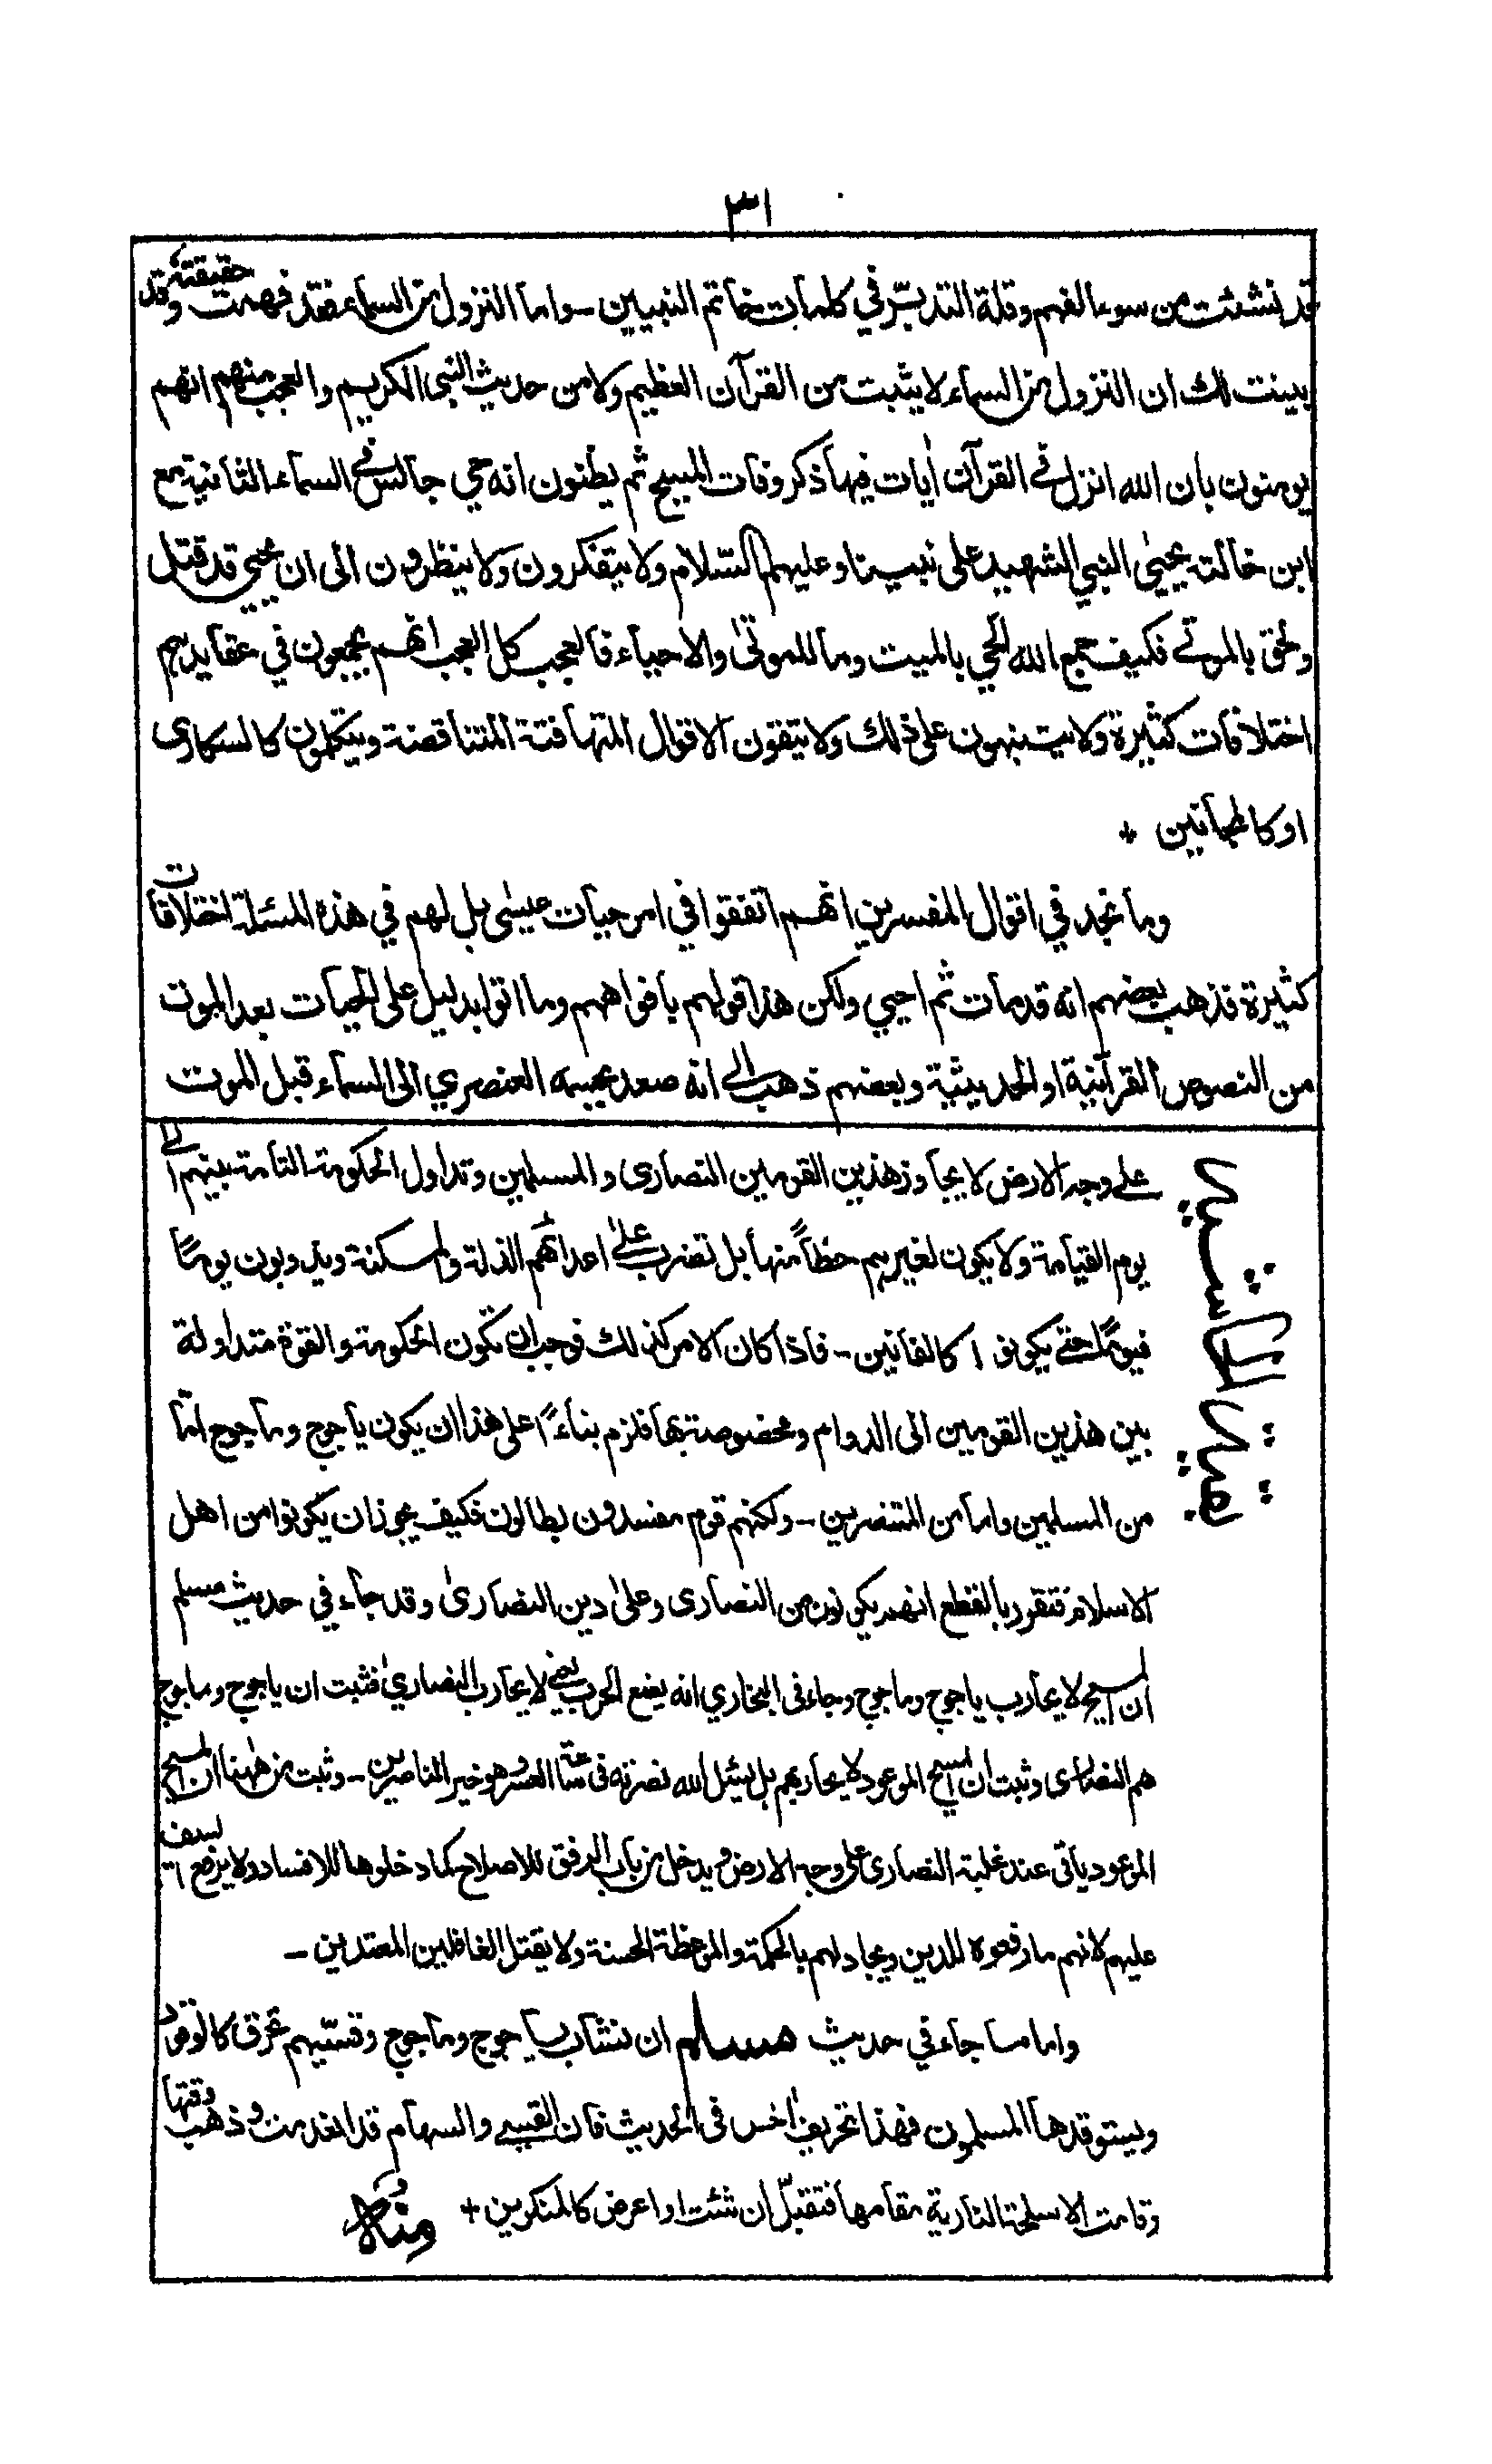 ٣١
قد نشئت من سوء الفهم وقلة التدبّر في كلمات خاتم النبيين - واما النزول من السماء فقد فهمت حقيقته وقد
بينت لك ان النزول من السماء لا يثبت من القرآن العظيم ولا من حديث النبي الكريم والعجب منهم انهم
يومنون بان الله انزل في القرآن اٰيات فيها ذكر وفات المسيح ثم يظنون انه حي جالس في السماء الثانية مع
ابن خالته يحيىٰ النبي الشهيد على نبينا وعليهم السّلام ولا يتفكرون ولا ينظرون الى ان يحيى قد قتل
ولحق بالموتى فكيف جمع الله الحي بالميت وما للموتىٰ والاحياء فالعجب كل العجب انهم يجمعون في عقايدهم
اختلافات كثيرة ولا يتنبهون على ذلك ولا يتقون الاقوال المتهافتة المتناقضة ويتكلمون كالسكارى
او كالمجانين +
وما نجد في اقوال المفسرين انهم اتفقوا في امر حيات عيسىٰ بل لهم في هذه المسئلة اختلافات
كثيرة فذهب بعضهم انه قد مات ثم احيي ولكن هذا قولهم بافواههم وما اتوا بدليل على الحيات بعد الموت
من النصوص القرآنية او الحديثية وبعضهم ذهب الى انه صعد بجسمه العنصري الى السماء قبل الموت
على وجه الارض لا يجاوز هذين القومين النصارى والمسلمين وتداول الحكومة التامة بينهم الى
يوم القيامة ولا يكون لغيرهم حظاً منها بل تضرب علىٰ اعدائهم الذلة والمسكنة ويذوبون يومًا
فيومًا حتى يكونوا كالفانين - فاذا كان الامر كذلك فوجب ان تكون الحكومة والقوة متداولة
بين هذين القومين الى الدوام ومخصوصة بها فلزم بناءً على هذا ان يكون ياجوج وماجوج امّا
من المسلمين واما من المتنصرين - ولكنهم قوم مفسدون بطالون فكيف يجوز ان يكونوا من اهل
الاسلام فتقرر بالقطع انهم يكونون من النصارى وعلىٰ دين النصارىٰ وقد جاء في حديث مسلم
ان المسيح لا يحارب ياجوج وماجوج وجاء في البخاري انه يضع الحرب يعني لا يحارب النصاريٰ فثبت ان ياجوج وماجوج
هم النصارى وثبت ان المسيح الموعود لا يحاربهم بل يسئل الله نصرته في ساعة العسر وهو خير الناصرين - وثبت من ههنا ان المسيح
الموعود ياتي عند غلبة النصارى على وجه الارض ويدخل من باب الرفق للاصلاح كما دخلوها للافساد ولا يرفع السيف
عليهم لانهم ما رفعوه للدين ويجادلهم بالحكمة والموعظة الحسنة ولا يقتل الغافلين المعتدين -
واما ما جاء في حديث مسلم ان نشاب ياجوج وماجوج وقسيّهم تحرق كالوقود
ويستوقدها المسلمون فهذا تحريف اٰخر في الحديث فان القسي والسهام قد انعدمت وذهب وقتها
وقامت الاسلحة النارية مقامها فتقبّل ان شئت او اعرض كالمنكرين + منه